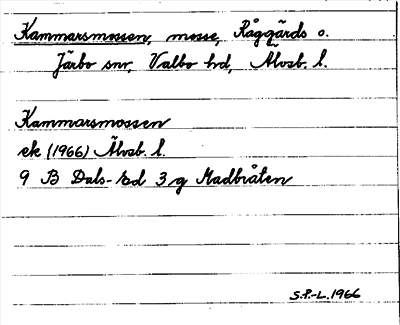 Kammarsmossen, mosse, Råggärds o.
Järbo snr, Valbo hd, Älvsb. l.
Kammarsmossen
ek (1966) Älvsb. l.
9 B Dals-Ed 3 g Madbråten
S.P.-L. 1966